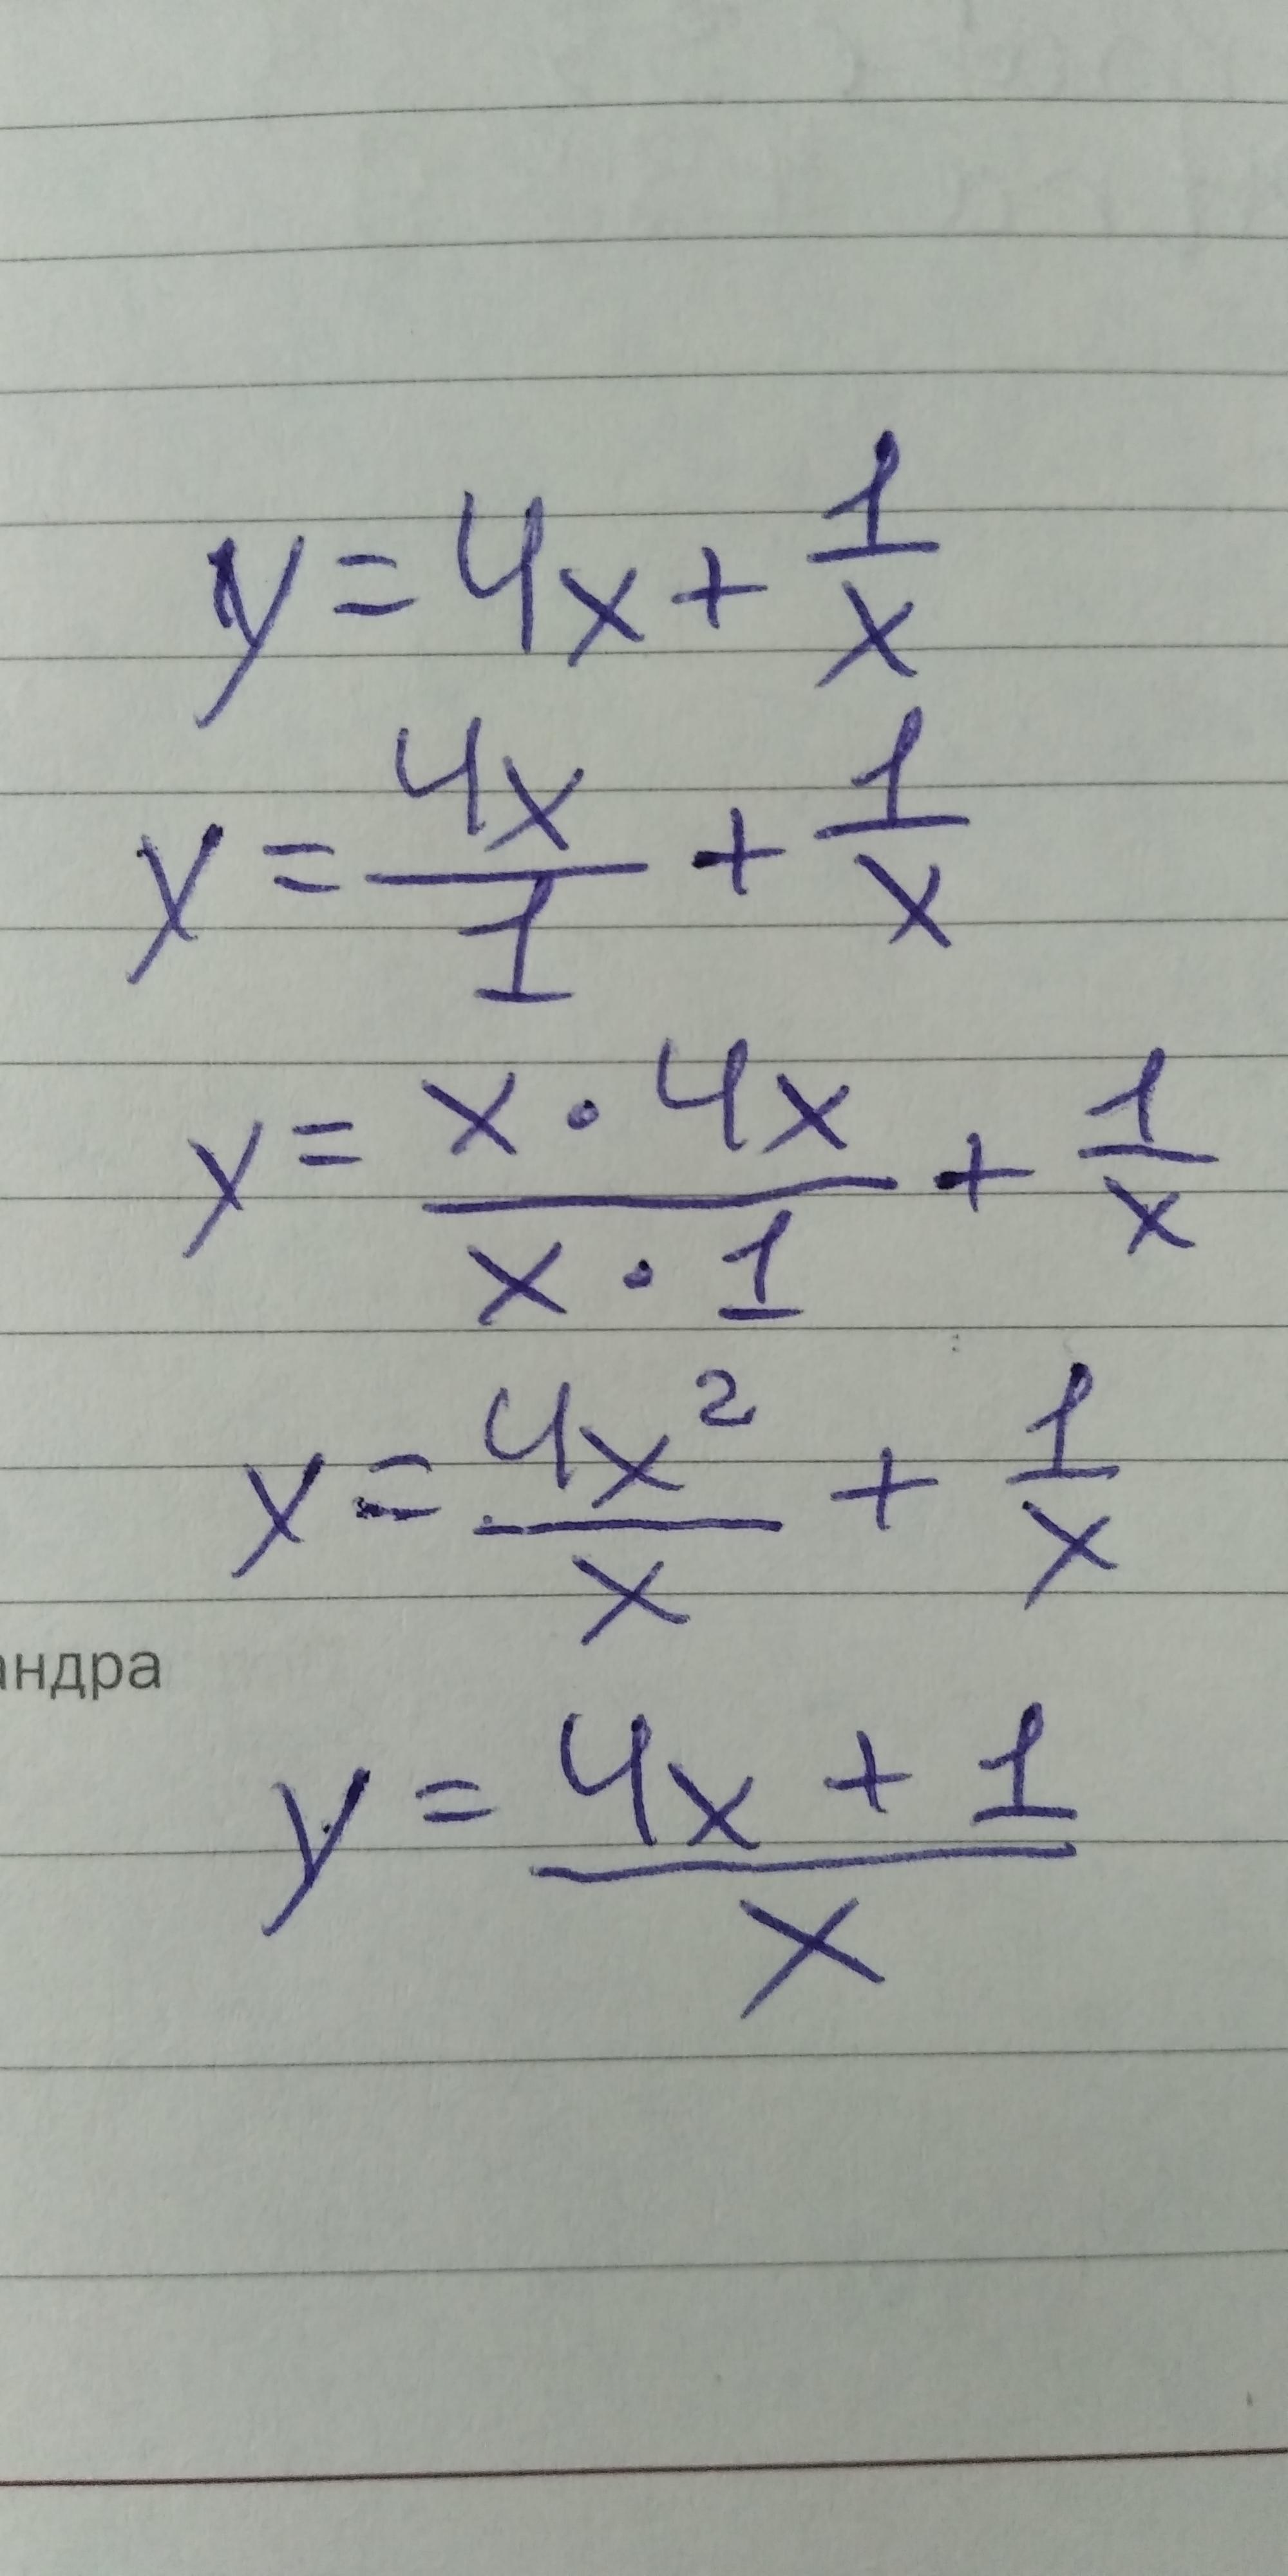 y = 4x + 1/x
y = 4x/1 + 1/x
y = x · 4x / x · 1 + 1/x
y = 4x²/x + 1/x
андра
y = 4x + 1 / x